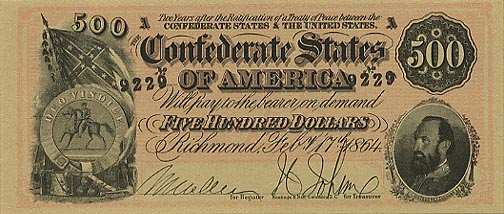 500 A Two Years after the Ratification of a Treaty of Peace between the A
CONFEDERATE STATES & THE UNITED STATES,
Confederate States 500
OF AMERICA
9229
Will pay to the bearer on demand
FIVE HUNDRED DOLLARS
Richmond, Feby. 17th, 1864.
for Register for Treasurer